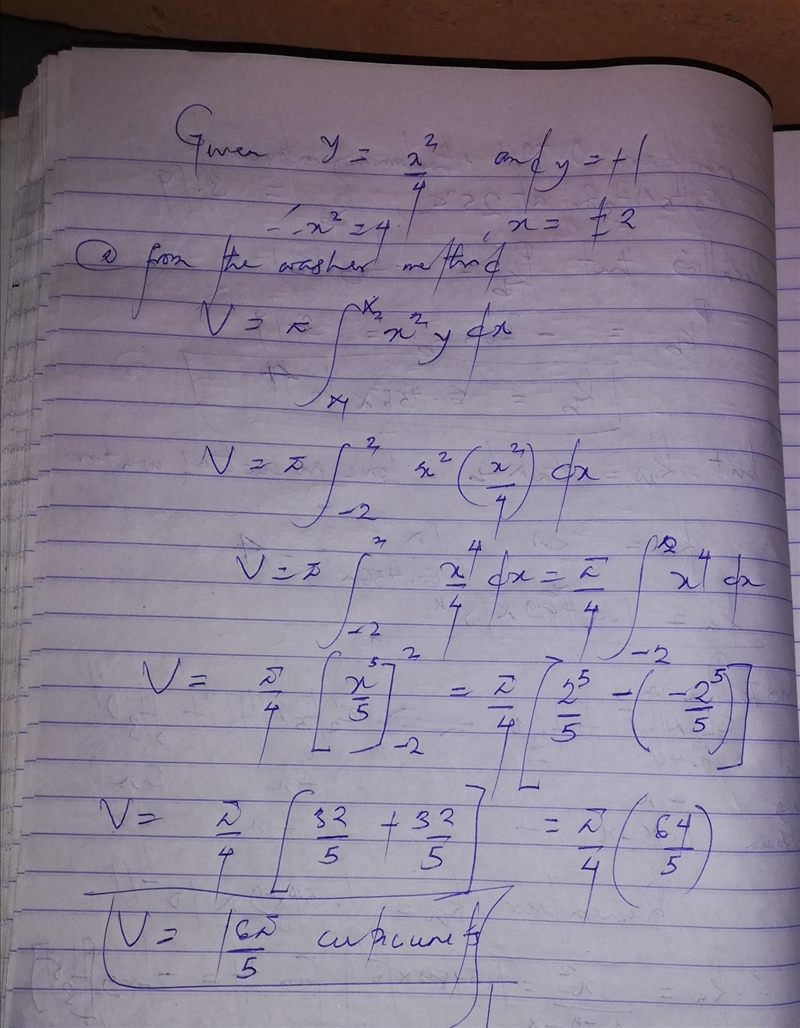 Given y = x²/4 and y = +1
∴ x² = 4, x = ±2
(a) from the washer method
V = π ∫_{x₁}^{x₂} x² y dx
V = π ∫_{-2}^{2} x² (x²/4) dx
V = π ∫_{-2}^{2} x⁴/4 dx = π/4 ∫_{-2}^{2} x⁴ dx
V = π/4 [x⁵/5]_{-2}^{2} = π/4 [2⁵/5 - (-2⁵/5)]
V = π/4 [32/5 + 32/5] = π/4 (64/5)
V = 16π/5 cubic units